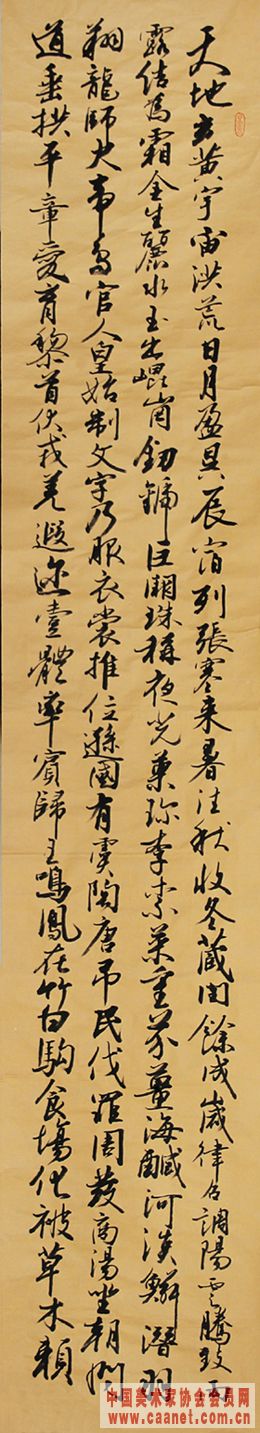 天地玄黃宇宙洪荒日月盈昃辰宿列張寒来暑往秋收冬藏閏餘成歲律召調陽雲騰致雨
露結為霜金生麗水玉出崐崗劒號巨闕珠稱夜光菓珍李柰菜重芥薑海鹹河淡鱗潛羽
翔龍師火帝鳥官人皇始制文字乃服衣裳推位遜國有虞陶唐吊民伐罪周發商湯坐朝問
道垂拱平章愛育黎首伏戎羌遐迩壹體率賓歸王鳴鳳在竹白駒食場化被草木賴
中国美术家协会会员网
www.caanet.com.cn